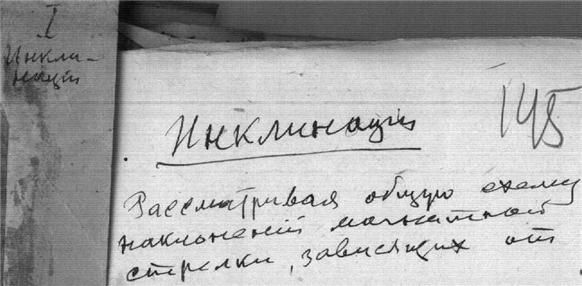 I
Инкли-
нация
Инклинация
145
Рассматривая общую схему
наклонений магнитной
стрелки, зависящих от